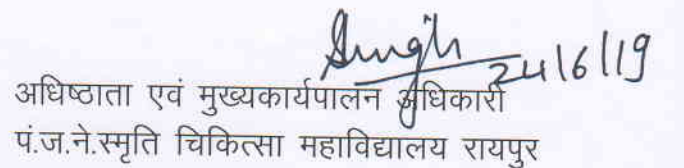 Singh
24/6/19
अधिष्ठाता एवं मुख्यकार्यपालन अधिकारी
पं.ज.ने.स्मृति चिकित्सा महाविद्यालय रायपुर